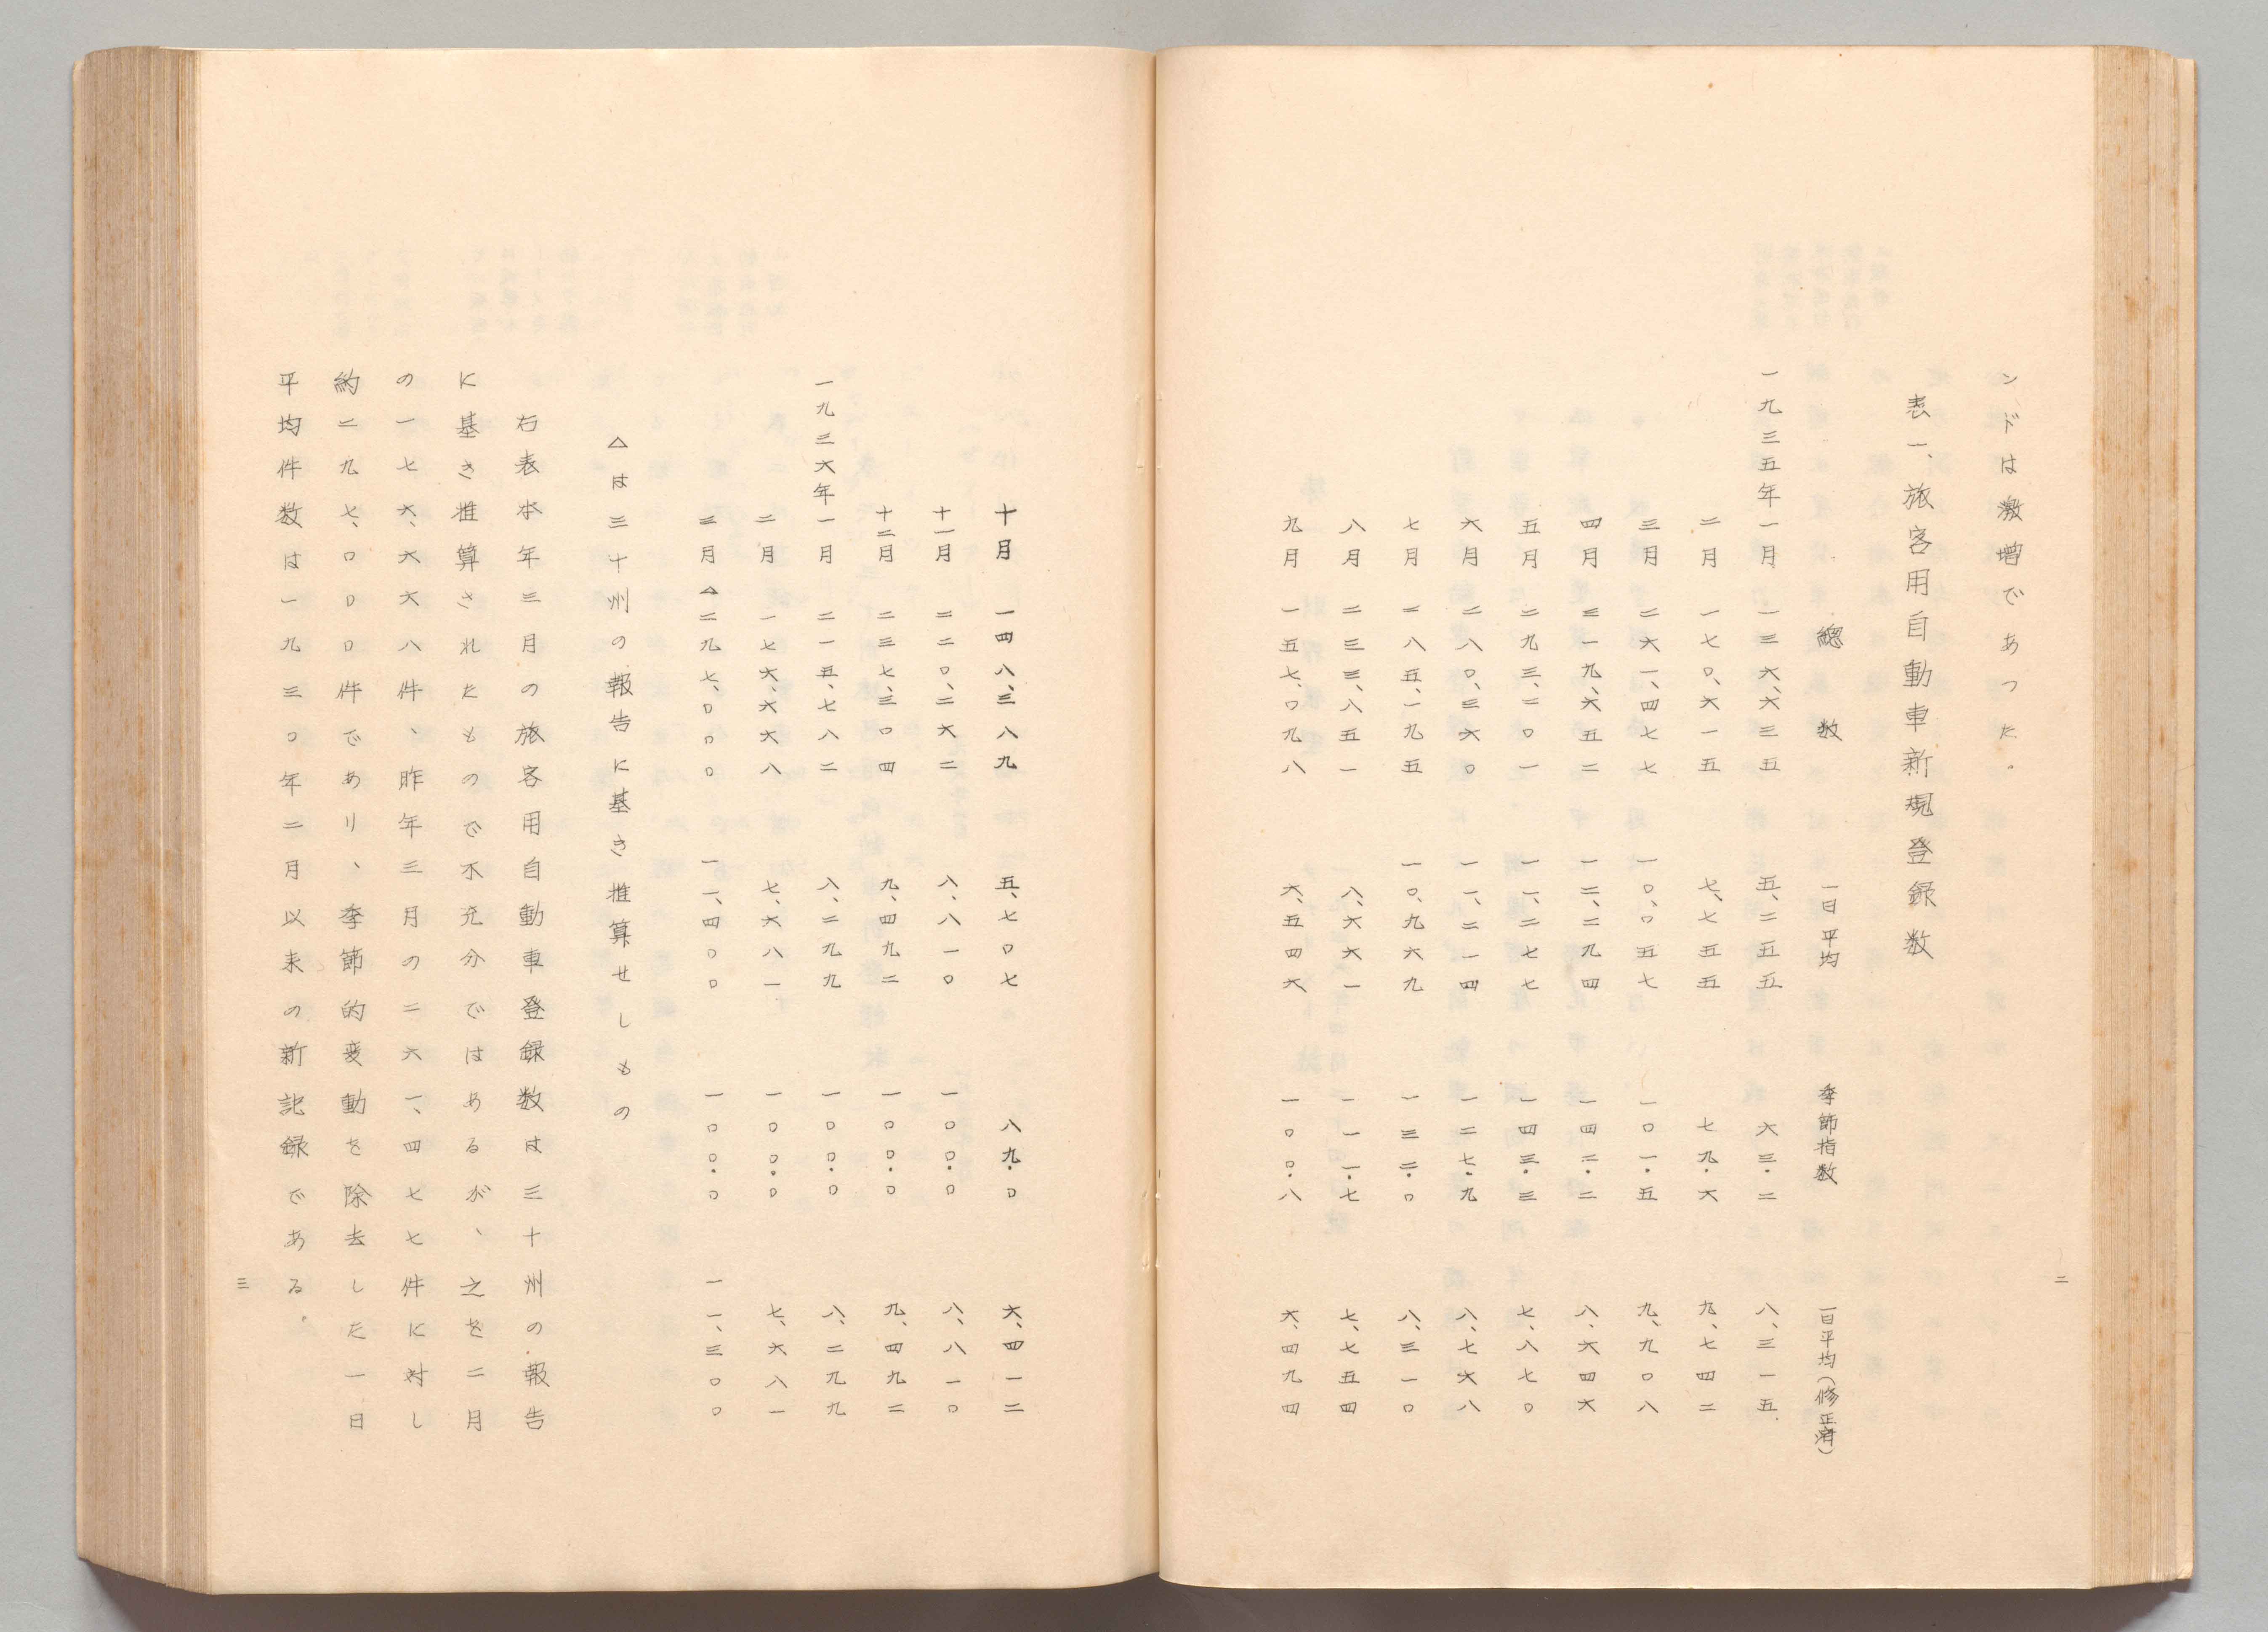 ンドは激増であつた。
表一、旅客用自動車新規登録数
總数 一日平均 季節指数 一日平均(修正済)
一九三五年一月 一三六、六三五 五、二五五 六三・二 八、三一五
二月 一七〇、六一五 七、七五五 七九・六 九、七四二
三月 二六一、四七七 一〇、〇五七 一〇一・五 九、九〇八
四月 三一九、六五二 一二、二九四 一四二・二 八、六四六
五月 二九三、二〇一 一一、二七七 一四三・三 七、八七〇
六月 二八〇、三六〇 一一、二一四 一二七・九 八、七六八
七月 二八五、一九五 一〇、九六九 一三二・〇 八、三一〇
八月 二三三、八五一 八、六六一 一一一・七 七、七五四
九月 一五七、〇九八 六、五四六 一〇〇・八 六、四九四
二
十月 一四八、三八九 五、七〇七 八九・〇 六、四一二
十一月 二二〇、二六二 八、八一〇 一〇〇・〇 八、八一〇
十二月 二三七、三〇四 九、四九二 一〇〇・〇 九、四九二
一九三六年一月 二一五、七八二 八、二九九 一〇〇・〇 八、二九九
二月 一七六、六六八 七、六八一 一〇〇・〇 七、六八一
三月 △二九七、〇〇〇 一一、四〇〇 一〇〇・〇 一一、三〇〇
△は三十州の報告に基き推算せしもの
右表本年三月の旅客用自動車登録数は三十州の報告
に基き推算されたもので不充分ではあるが、之を二月
の一七六、六六八件、昨年三月の二六一、四七七件に対し
約二九七、〇〇〇件であり、季節的変動を除去した一日
平均件数は一九三〇年二月以来の新記録である。
三